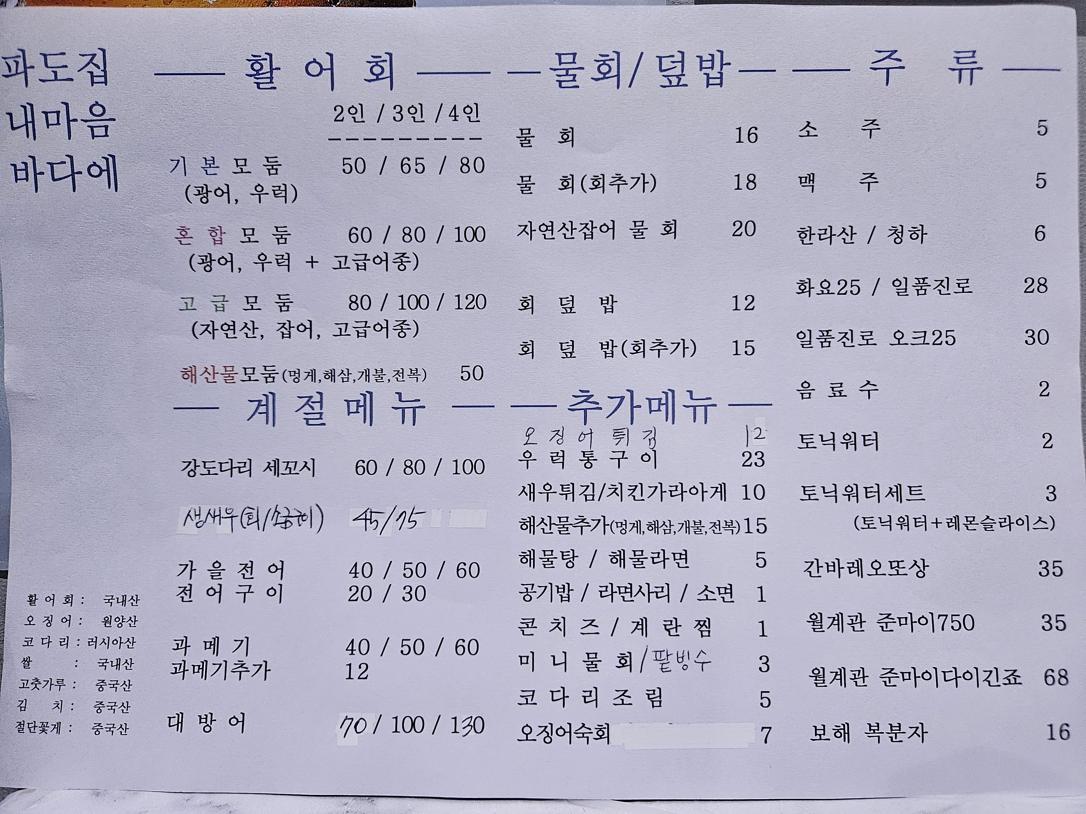 파도집
내마음
바다에
활 어 회
2인 / 3인 / 4인
기 본 모 둠 50 / 65 / 80
(광어, 우럭)
혼 합 모 둠 60 / 80 / 100
(광어, 우럭 + 고급어종)
고 급 모 둠 80 / 100 / 120
(자연산, 잡어, 고급어종)
해산물모둠(멍게,해삼,개불,전복) 50
계 절 메 뉴
강도다리 세꼬시 60 / 80 / 100
생새우(회/소금구이) 45/75
가 을 전 어 40 / 50 / 60
전 어 구 이 20 / 30
과 메 기 40 / 50 / 60
과메기추가 12
대 방 어 70 / 100 / 130
물회/덮밥
물 회 16
물 회(회추가) 18
자연산잡어 물 회 20
회 덮 밥 12
회 덮 밥(회추가) 15
추가메뉴
오 징 어 튀 김 12
우 럭 통 구 이 23
새우튀김/치킨가라아게 10
해산물추가(멍게,해삼,개불,전복) 15
해물탕 / 해물라면 5
공기밥 / 라면사리 / 소면 1
콘 치 즈 / 계 란 찜 1
미 니 물 회/팥빙수 3
코 다 리 조 림 5
오징어숙회 7
주 류
소 주 5
맥 주 5
한라산 / 청하 6
화요25 / 일품진로 28
일품진로 오크25 30
음 료 수 2
토닉워터 2
토닉워터세트 3
(토닉워터+레몬슬라이스)
간바레오또상 35
월계관 준마이750 35
월계관 준마이다이긴죠 68
보해 복분자 16
활 어 회 : 국내산
오 징 어 : 원양산
코 다 리 : 러시아산
쌀 : 국내산
고춧가루 : 중국산
김 치 : 중국산
절단꽃게 : 중국산